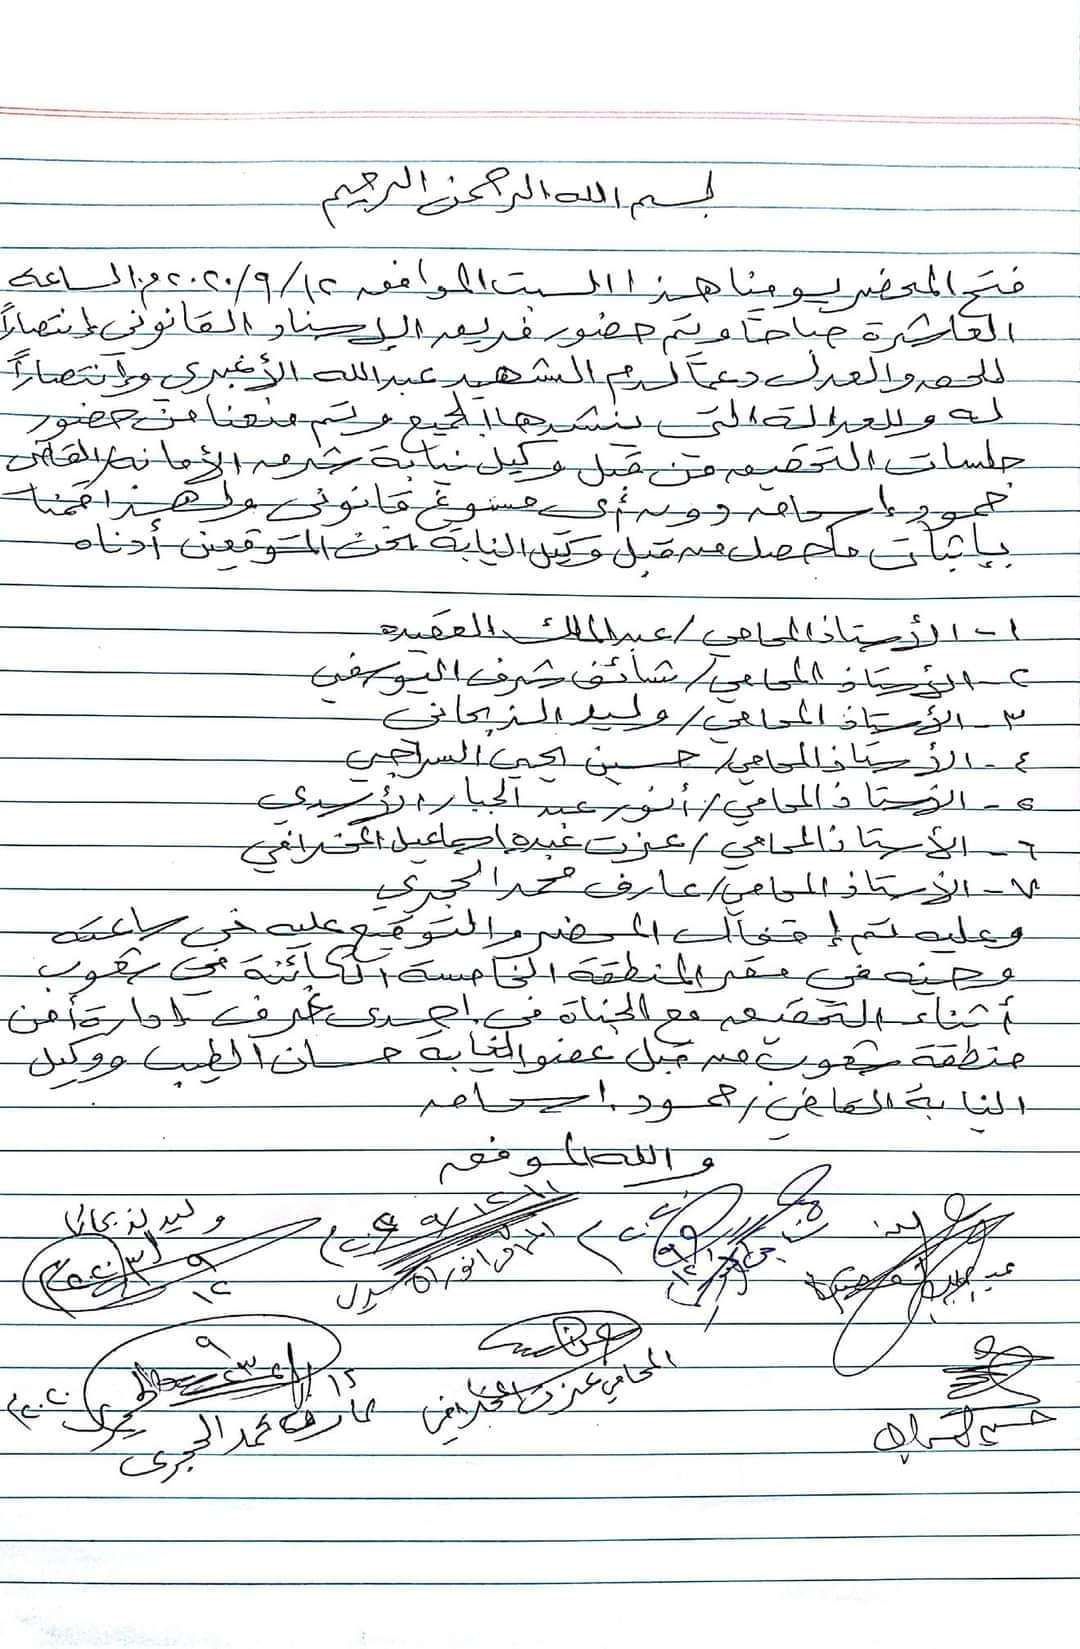 بسم الله الرحمن الرحيم
فتح المحضر يومنا هذا السبت الموافق ١٢/٩/٢٠٢٠م الساعة
العاشرة صباحاً وتم حضور فريق الإسناد القانوني إنتصاراً
للحق والعدل دعماً لدم الشهيد عبدالله الأغبري وإنتصاراً
له وللعدالة التي ينشدها الجميع وتم منعنا من حضور
جلسات التحقيق من قبل وكيل نيابة شرق الأمانة القاضي
حمود إسحاق دون أي مسوغ قانوني ولهذا قمنا
بإثبات ماحصل من قبل وكيل النيابة نحن الموقعين أدناه
١- الأستاذ المحامي/ عبدالملك العقيده
٢- الأستاذ المحامي/ شائف شرف اليوسفي
٣- الأستاذ المحامي/ وليد الذبحاني
٤- الأستاذ المحامي/ حسين يحيى السراجي
٥- الاستاذ المحامي/ أنور عبد الجبار الأسدي
٦- الأستاذ المحامي/ عزت عبده اسماعيل المخرافي
٧- الأستاذ المحامي/ عارف محمد الحجري
وعليه تم إقفال المحضر والتوقيع عليه في ساعته
وحينه في مقر المنطقة الخامسة الكائنة في شعوب
أثناء التحقيق مع الجناة في احدى غرف إدارة أمن
منطقة شعوب من قبل عضو النيابة حسان الطيب ووكيل
النيابة القاضي/ حمود اسحاق
والله الموفق
وليد الذبحاني
المحامي عزت المخرافي
عارف محمد الحجري